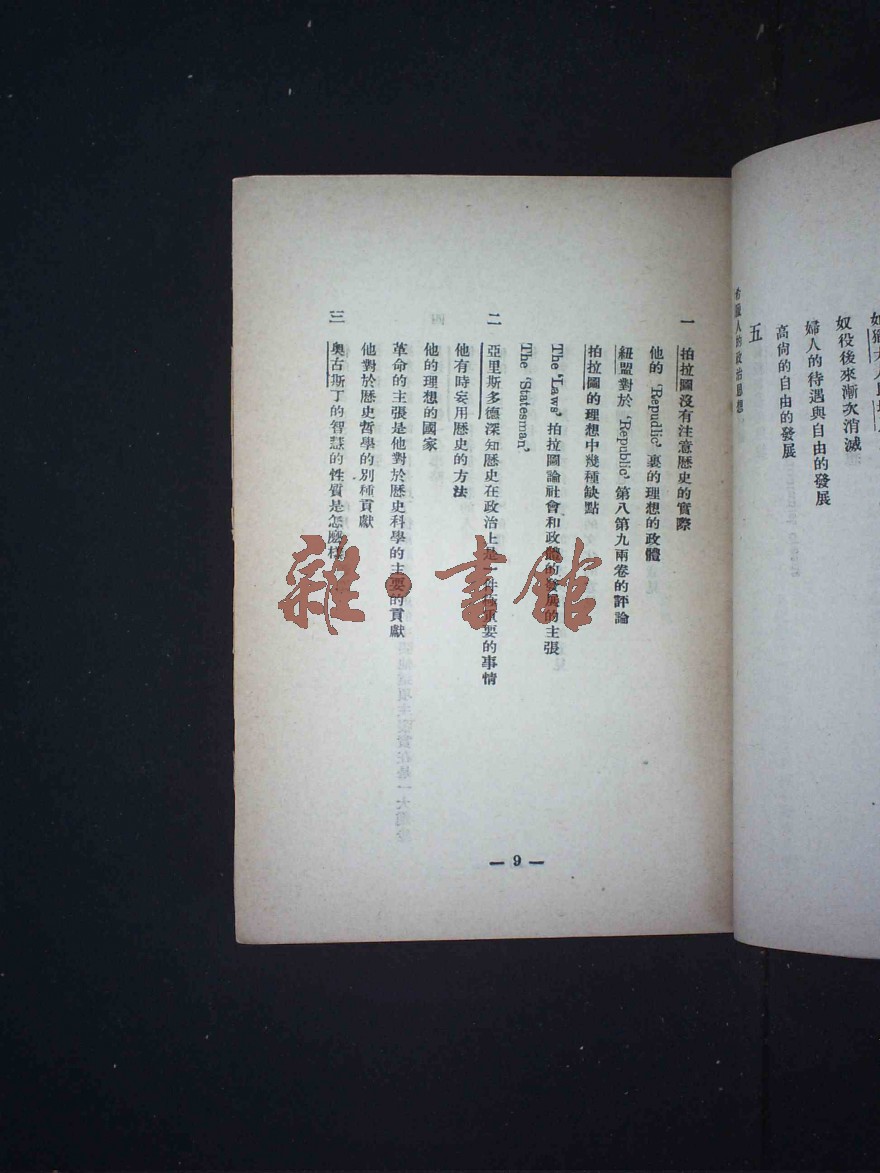 奴役後來漸次消滅
婦人的待遇與自由的發展
高尙的自由的發展
五
希臘人的政治思想
一 拍拉圖沒有注意歷史的實際
他的 'Repudlic' 裏的理想的政體
紐盟對於 'Republic' 第八第九兩卷的評論
拍拉圖的理想中幾種缺點
The 'Laws' 拍拉圖論社會和政體的發展的主張
The 'Statesman'
二 亞里斯多德深知歷史在政治上是一件極重要的事情
他有時妄用歷史的方法
他的理想的國家
革命的主張是他對於歷史科學的主要的貢獻
他對於歷史哲學的別種貢獻
三 奧古斯丁的智慧的性質是怎麽樣
— 9 —
雜·書館